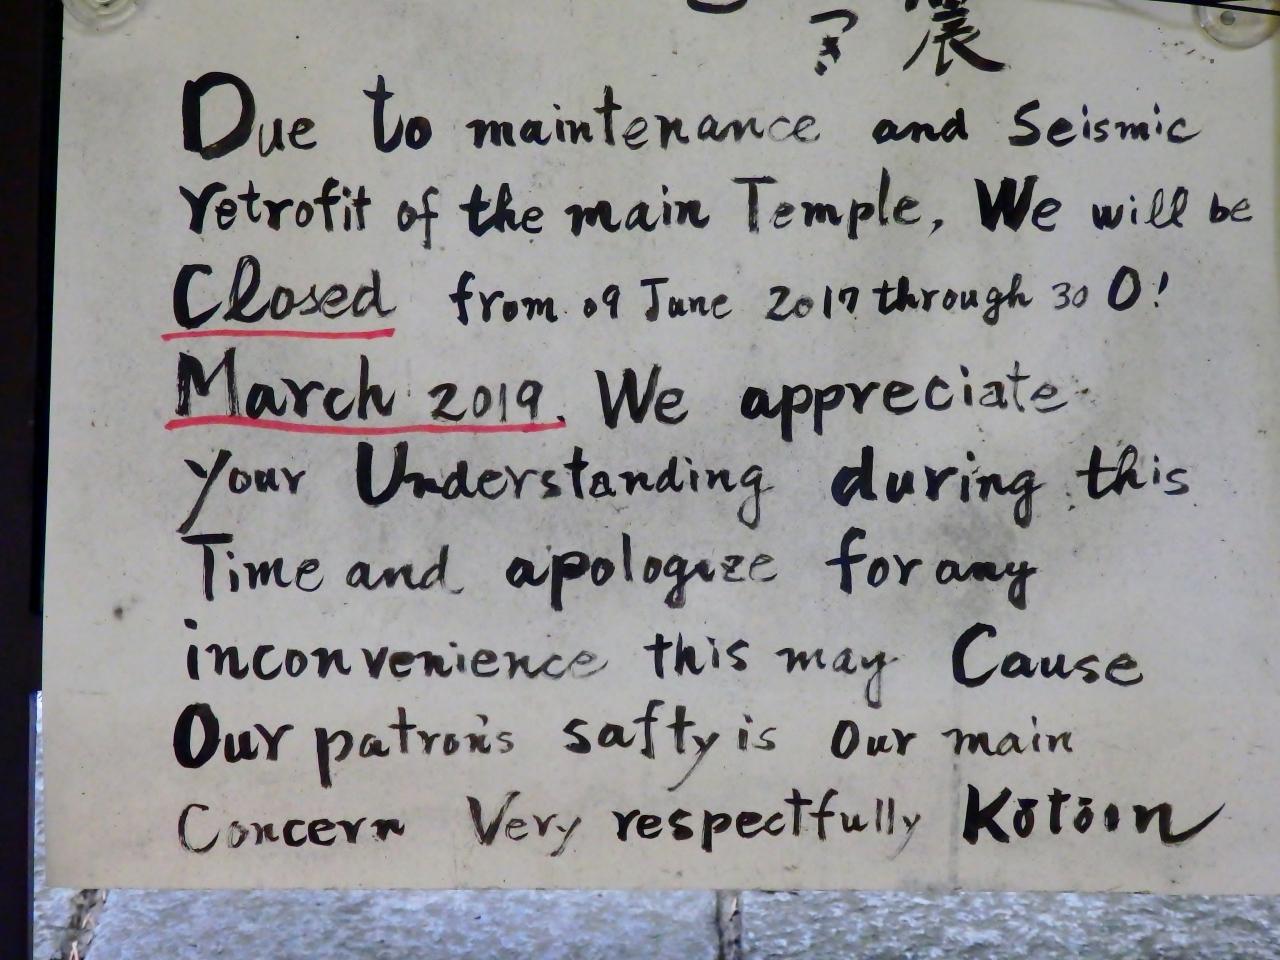 Due to maintenance and Seismic
retrofit of the main Temple, We will be
Closed from 09 June 2017 through 30 O!
March 2019. We appreciate
your Understanding during this
Time and apologize for any
inconvenience this may Cause
Our patron's safty is Our main
Concern Very respectfully Kōtōin